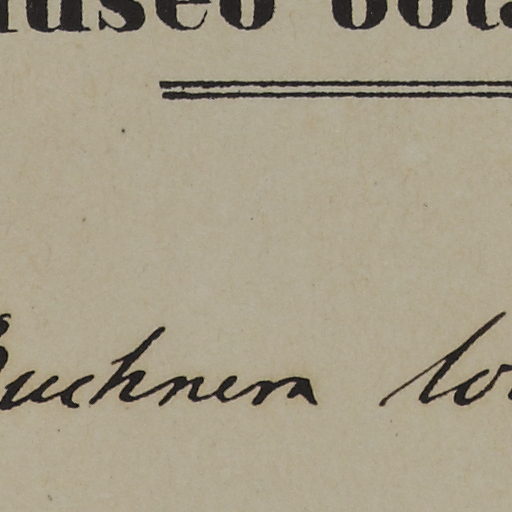 museo bota
Buchnera lo